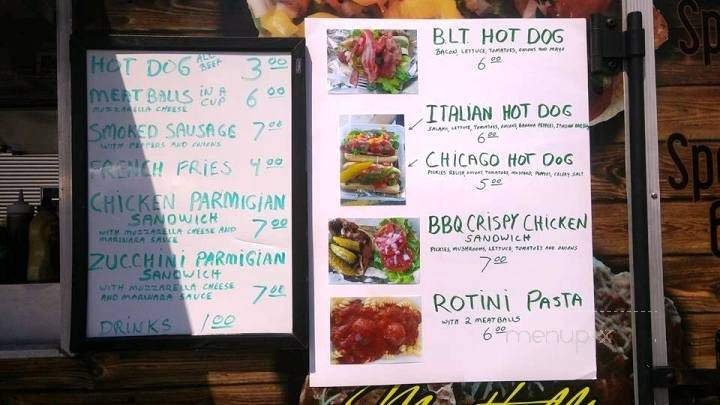 HOT DOG ALL BEEF 3 00
MEATBALLS IN A CUP 6 00
MOZZARELLA CHEESE
SMOKED SAUSAGE 7 00
WITH PEPPERS AND ONIONS
FRENCH FRIES 4 00
CHICKEN PARMIGIAN
SANDWICH
WITH MUZZARELLA CHEESE AND
MARINARA SAUCE 7 00
ZUCCHINI PARMIGIAN
SANDWICH
WITH MUZZARELLA CHEESE
AND MARINARA SAUCE 7 00
DRINKS 1 00
B.L.T. HOT DOG
BACON, LETTUCE, TOMATOES, ONIONS AND MAYO
6 00
ITALIAN HOT DOG
SALAMI, LETTUCE, TOMATOES, ONIONS, BANANA PEPPERS, ITALIAN
6 00
CHICAGO HOT DOG
PICKLES RELISH ONIONS, TOMATOES, MUSTARD, PEPPERS, CELERY SALT
5 00
BBQ CRISPY CHICKEN
SANDWICH
PICKLES, MUSHROOMS, LETTUCE, TOMATOES AND ONIONS
7 00
ROTINI PASTA
WITH 2 MEATBALLS
6 00
menupix
Sp
Spe